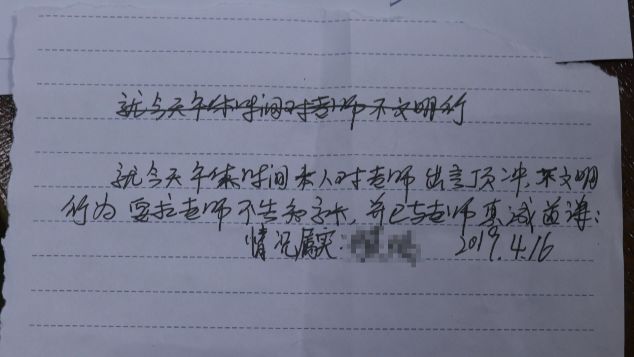 就今天午休时间对老师不文明行
就今天午休时间本人对老师出言顶冲,不文明
行为 要求老师不告知家长,并已与老师真诚道谦:
情况属实: 2019.4.16